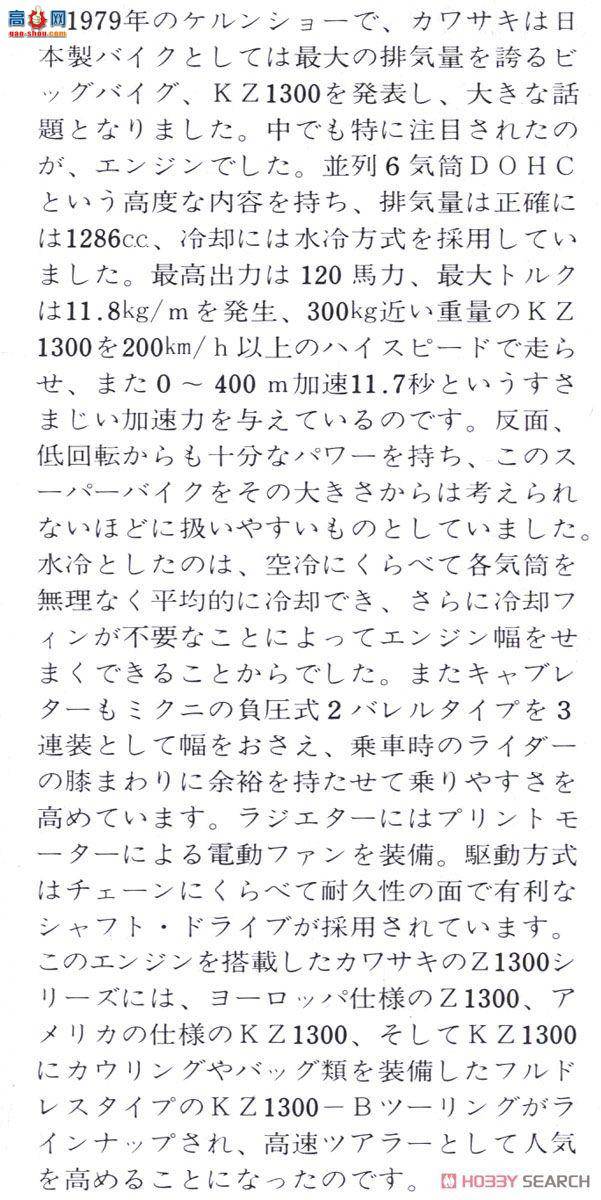 高网
gao-shou.com
1979年のケルンショーで、カワサキは日
本製バイクとしては最大の排気量を誇るビ
ッグバイグ、KZ1300を発表し、大きな話
題となりました。中でも特に注目されたの
が、エンジンでした。並列6気筒DOHC
という高度な内容を持ち、排気量は正確に
は1286c.c.、冷却には水冷方式を採用してい
ました。最高出力は 120 馬力、最大トルク
は11.8kg/mを発生、300kg近い重量のKZ
1300を200km/h以上のハイスピードで走ら
せ、また0～ 400 m加速11.7秒というすさ
まじい加速力を与えているのです。反面、
低回転からも十分なパワーを持ち、このス
ーパーバイクをその大きさからは考えられ
ないほどに扱いやすいものとしていました。
水冷としたのは、空冷にくらべて各気筒を
無理なく平均的に冷却でき、さらに冷却フ
ィンが不要なことによってエンジン幅をせ
まくできることからでした。またキャブレ
ターもミクニの負圧式2バレルタイプを3
連装として幅をおさえ、乗車時のライダー
の膝まわりに余裕を持たせて乗りやすさを
高めています。ラジエターにはプリントモ
ーターによる電動ファンを装備。駆動方式
はチェーンにくらべて耐久性の面で有利な
シャフト・ドライブが採用されています。
このエンジンを搭載したカワサキのZ1300シ
リーズには、ヨーロッパ仕様のZ1300、ア
メリカの仕様のKZ1300、そしてKZ1300
にカウリングやバッグ類を装備したフルド
レスタイプのKZ1300－Bツーリングがラ
インナップされ、高速ツアラーとして人気
を高めることになったのです。
HOBBY SEARCH